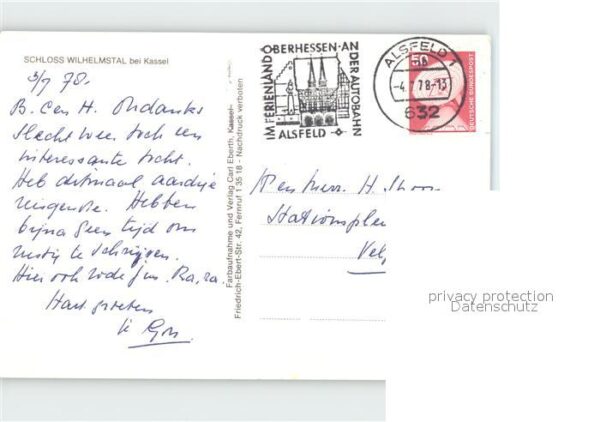 SCHLOSS WILHELMSTAL bei Kassel
3/7 78.
B. C en H. Ondanks
slecht weer toch een
interessante tocht.
Heb ditmaal aardige
reisgenote. Hebben
bijna geen tijd om
rustig te schrijven.
Hier ook
Hart. groeten
Farbaufnahme und Verlag Carl Eberth, Kassel-
Friedrich-Ebert-Str. 42, Fernruf 1 35 18 - Nachdruck verboten
IM FERIENLAND OBERHESSEN · AN DER AUTOBAHN
ALSFELD
ALSFELD 1
-4.7.78-13
632
50
DEUTSCHE BUNDESPOST
H.
Stationsplein
privacy protection
Datenschutz